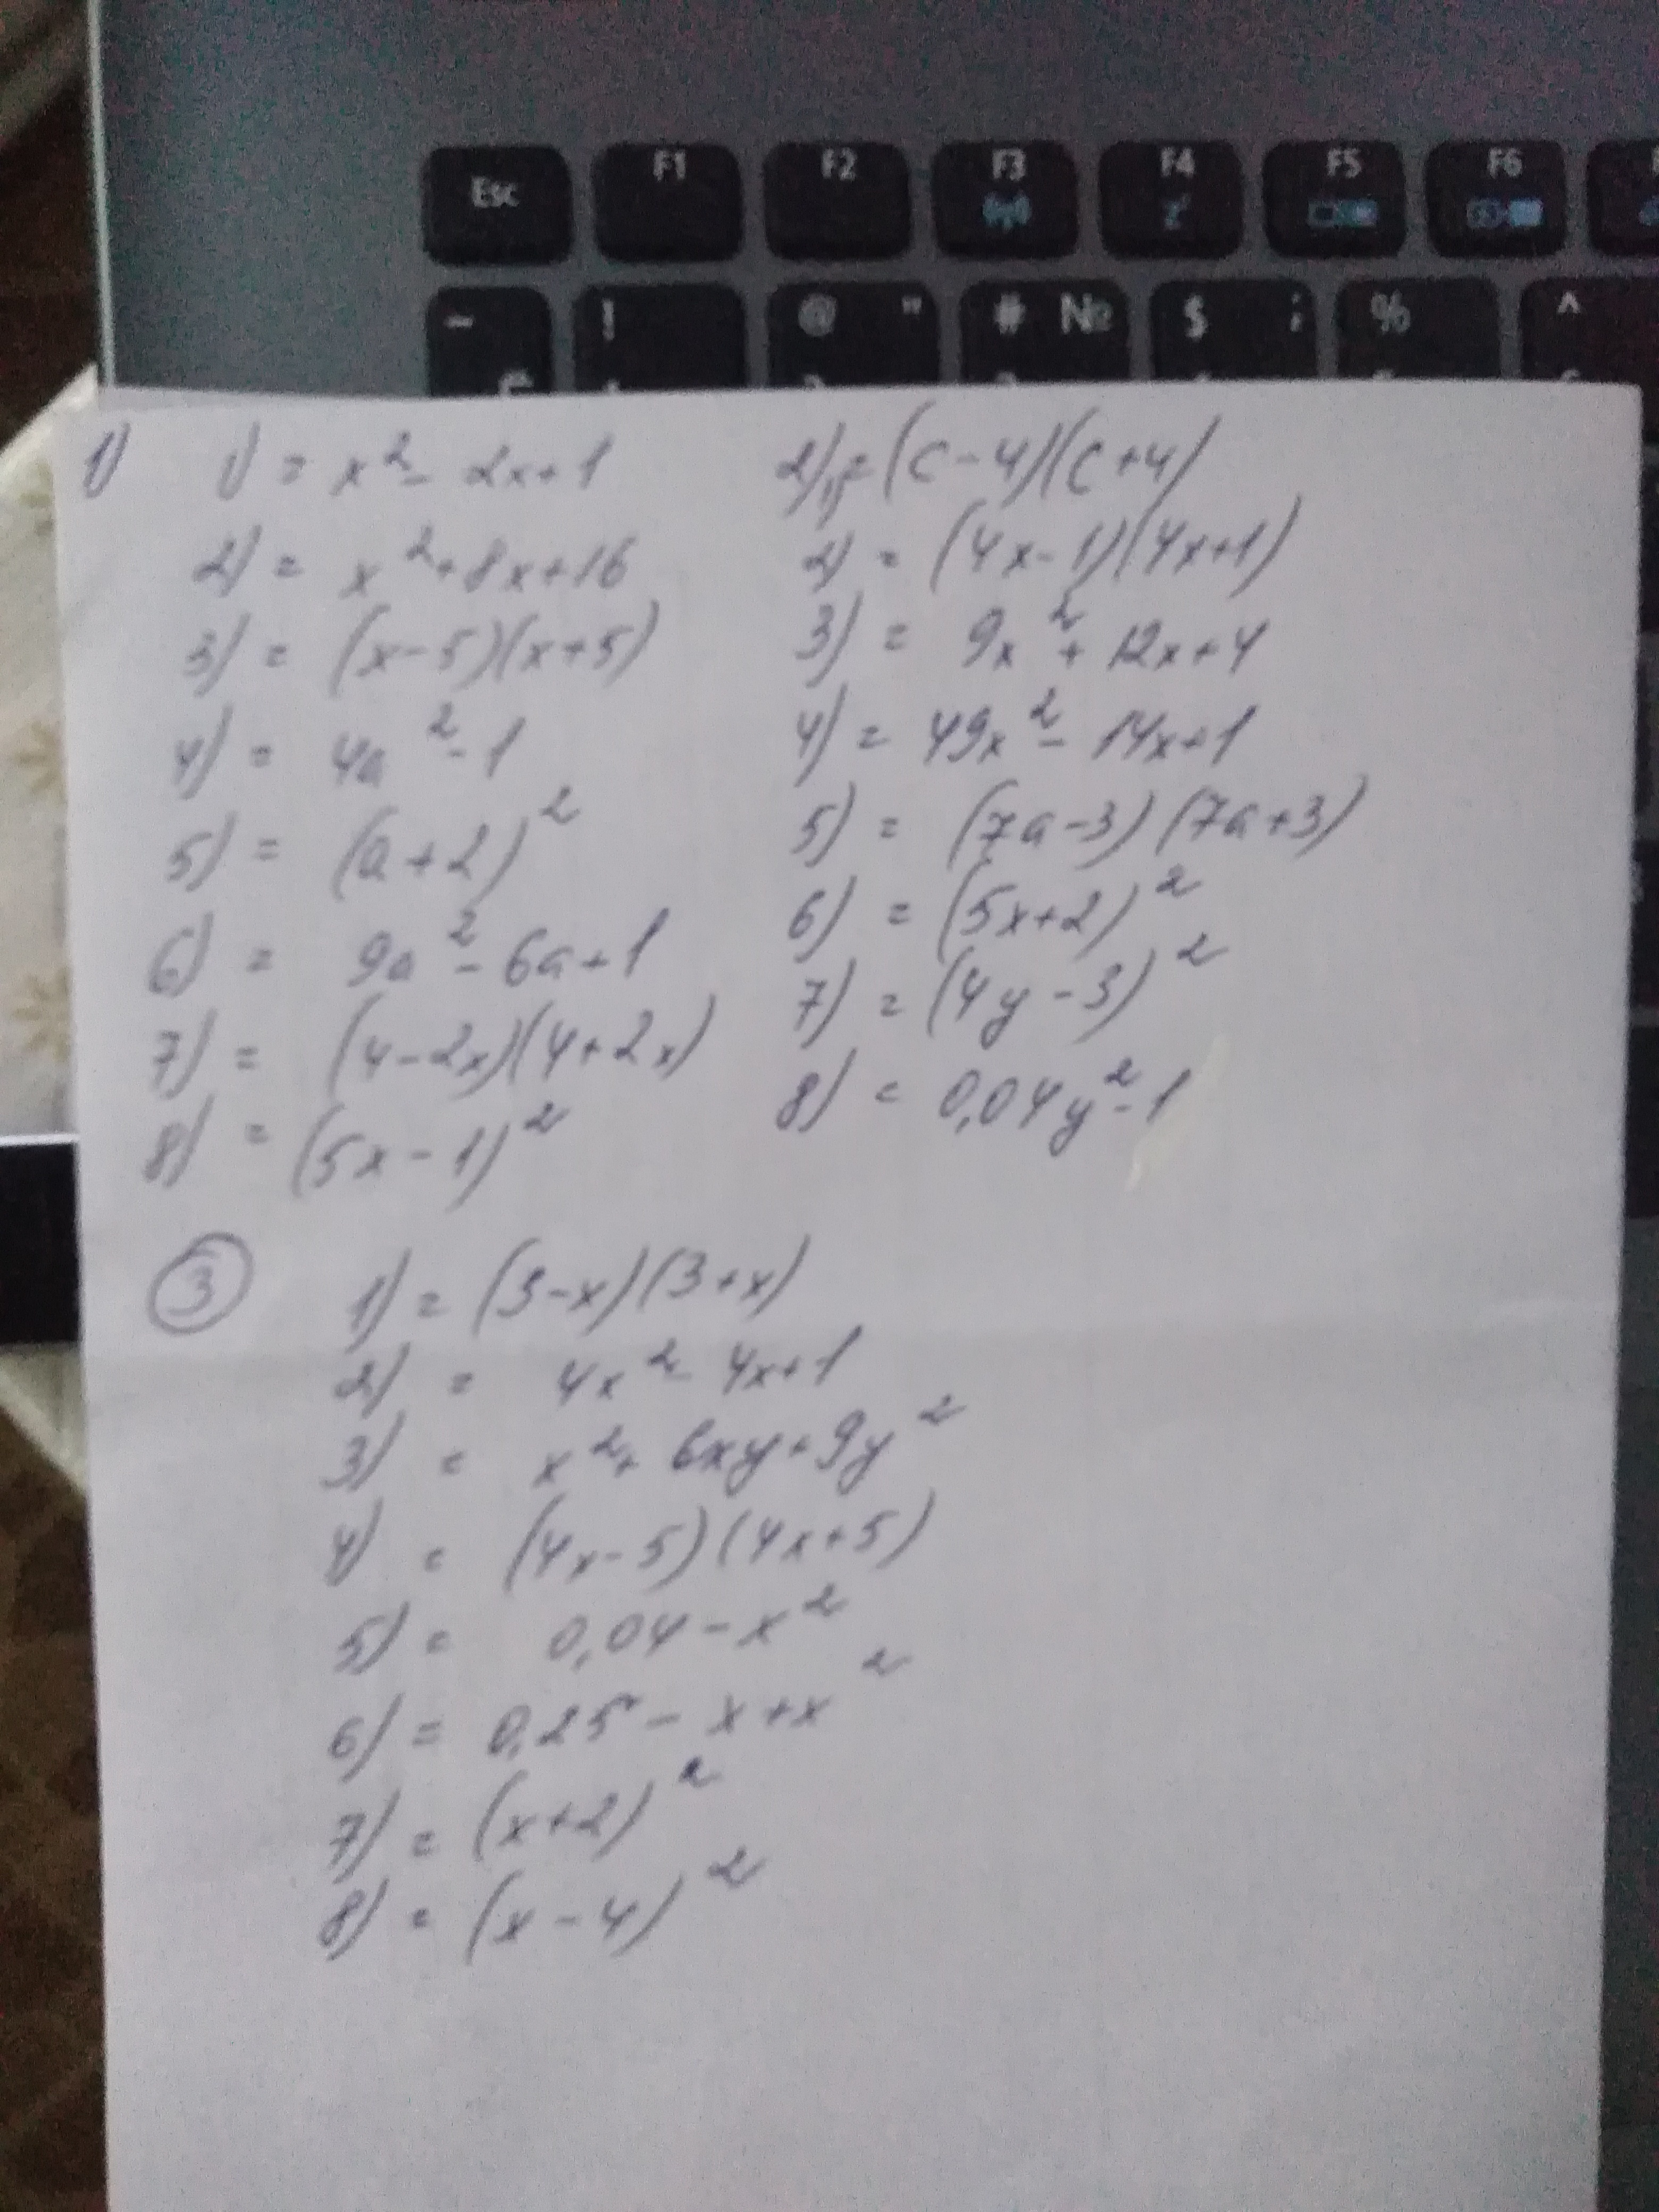 Esc F1 F2 F3 F4 F5 F6
~ ! @ " # № $ ; % ^
1) 1) = x² - 2x+1
2) = x²+8x+16
3) = (x-5)(x+5)
4) = 4a²-1
5) = (a+2)²
6) = 9a²-6a+1
7) = (4-2x)(4+2x)
8) = (5x-1)²
2) 1) = (c-4)(c+4)
2) = (4x-1)(4x+1)
3) = 9x²+12x+4
4) = 49x²-14x+1
5) = (7a-3)(7a+3)
6) = (5x+2)²
7) = (4y-3)²
8) = 0,04y²-1
3 1) = (3-x)(3+x)
2) = 4x²-4x+1
3) = x²+6xy+9y²
4) = (4x-5)(4x+5)
5) = 0,04-x²
6) = 0,25-x+x²
7) = (x+2)²
8) = (x-4)²